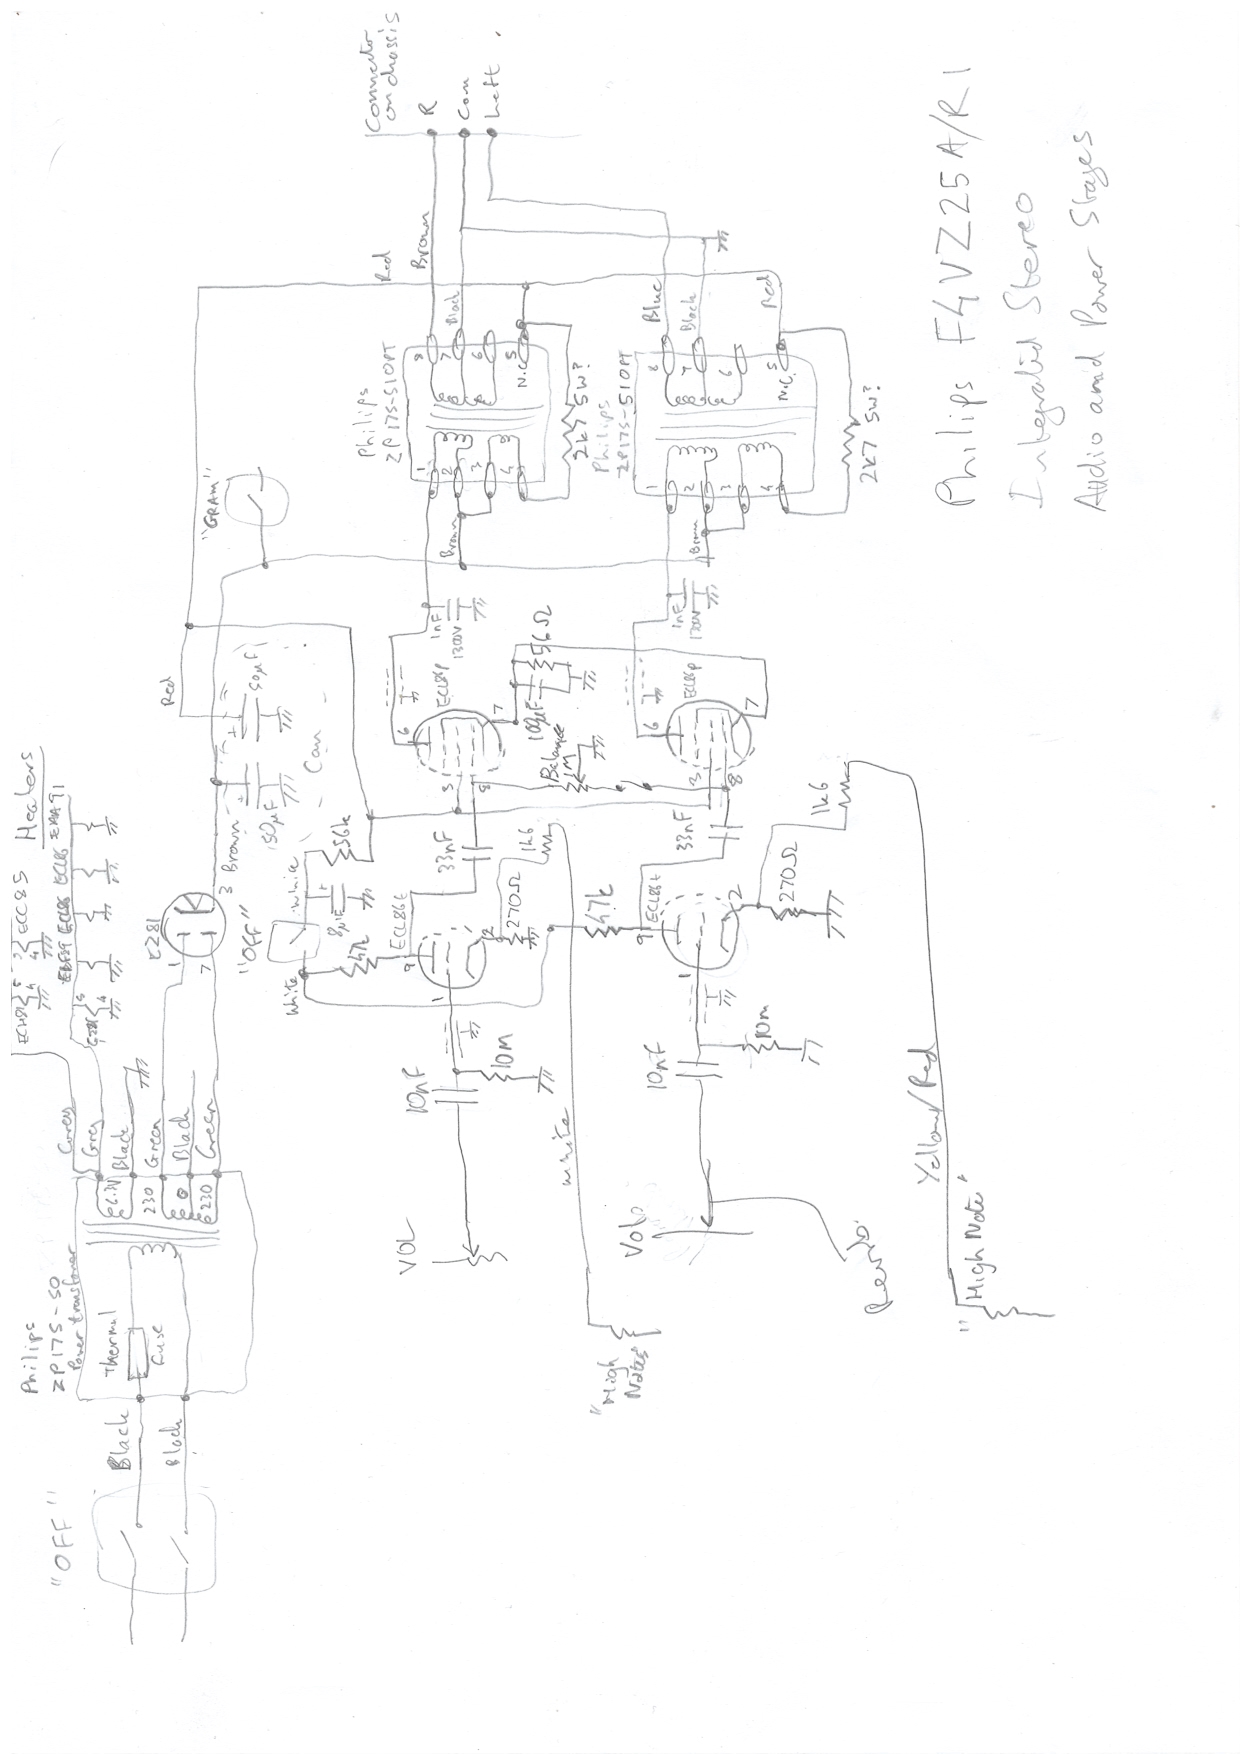 Philips F4VZ25A/R1
Integrated Stereo
Audio and Power Stages
Heaters
ECC85
EMM91
EZ81
Philips
ZP175-50
Power transformer
"OFF"
Black
Black
Thermal
fuse
6.3V
230
0
230
Grey
Grey
Black
Green
Black
Green
1
7
3
Brown
Red
150µF
50µF
Can
"OFF"
White
White
8µF
56k
47k
"GRAM"
Connector
on chassis
R
Com
Left
Red
Brown
Black
Philips
ZP175-510PT
1
2
3
4
8
7
6
5
N.C.
2k7 5W?
Brown
1nF
1300V
ECL86p
6
3
8
7
100µF
56Ω
Balance
1M
33nF
ECL86t
9
1
2
270Ω
1k6
10nF
10M
VOL
White
"High
Notes"
Philips
ZP175-510PT
Blue
Black
Red
1
2
3
4
8
7
6
5
N.C.
2k7 5W?
Brown
1nF
1300V
ECL86p
6
3
8
7
33nF
47k
ECL86t
9
1
2
270Ω
1k6
10nF
10M
Vol
Yellow/Red
"High Note"